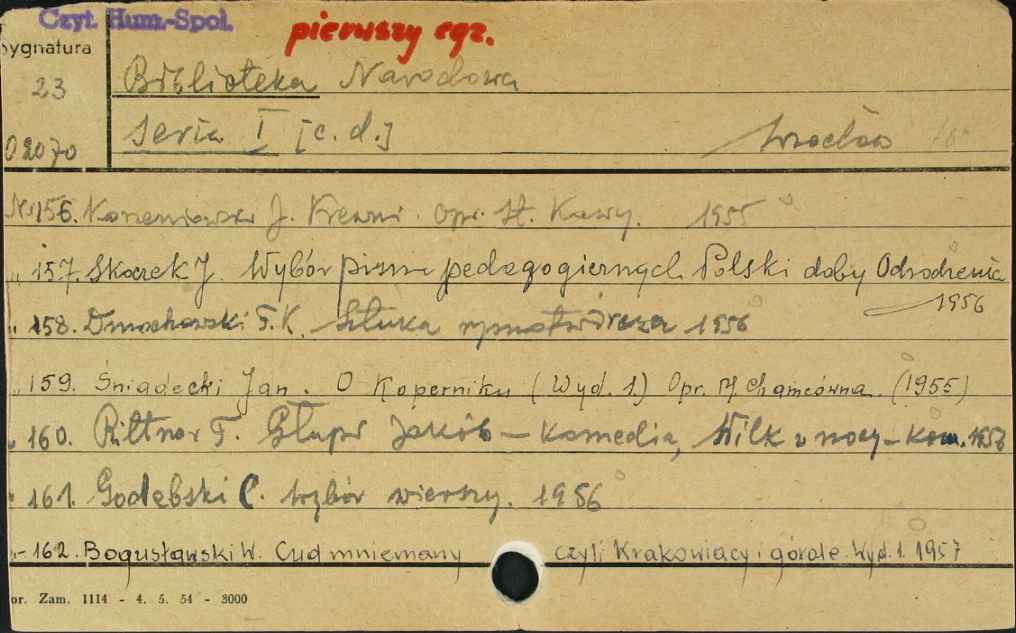 Czyt. Hum.-Społ.
pierwszy egz.
Sygnatura
23
02070
Biblioteka Narodowa
Seria I [c. d.]
Wrocław
Nr 156. Korzeniowski J. Krewni. Opr. St. Kawy. 1955
" 157. Skoczek J. Wybór pism pedagogicznych Polski doby Odrodzenia
1956
" 158. Dmochowski F. K. Sztuka rymotwórcza 1956
" 159. Śniadecki Jan. O Koperniku (Wyd. 1.) Opr. M. Chamcówna. (1955)
" 160. Rittner T. Głupi Jakób – Komedia, Wilki w nocy – Kom. 1956
" 161. Godebski C. Wybór wierszy. 1956
"- 162. Bogusławski W. Cud mniemany czyli Krakowiacy i górale. Wyd. 1. 1957
or. Zam. 1114 - 4. 5. 54 - 3000